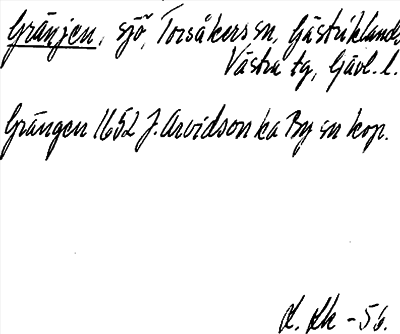 Grängen, sjö, Torsåkers sn, Gästriklands
Västra tg, Gävl. l.
Grängen 1652 J. Arvidson ka By sn kop.
L. Lk - 56.